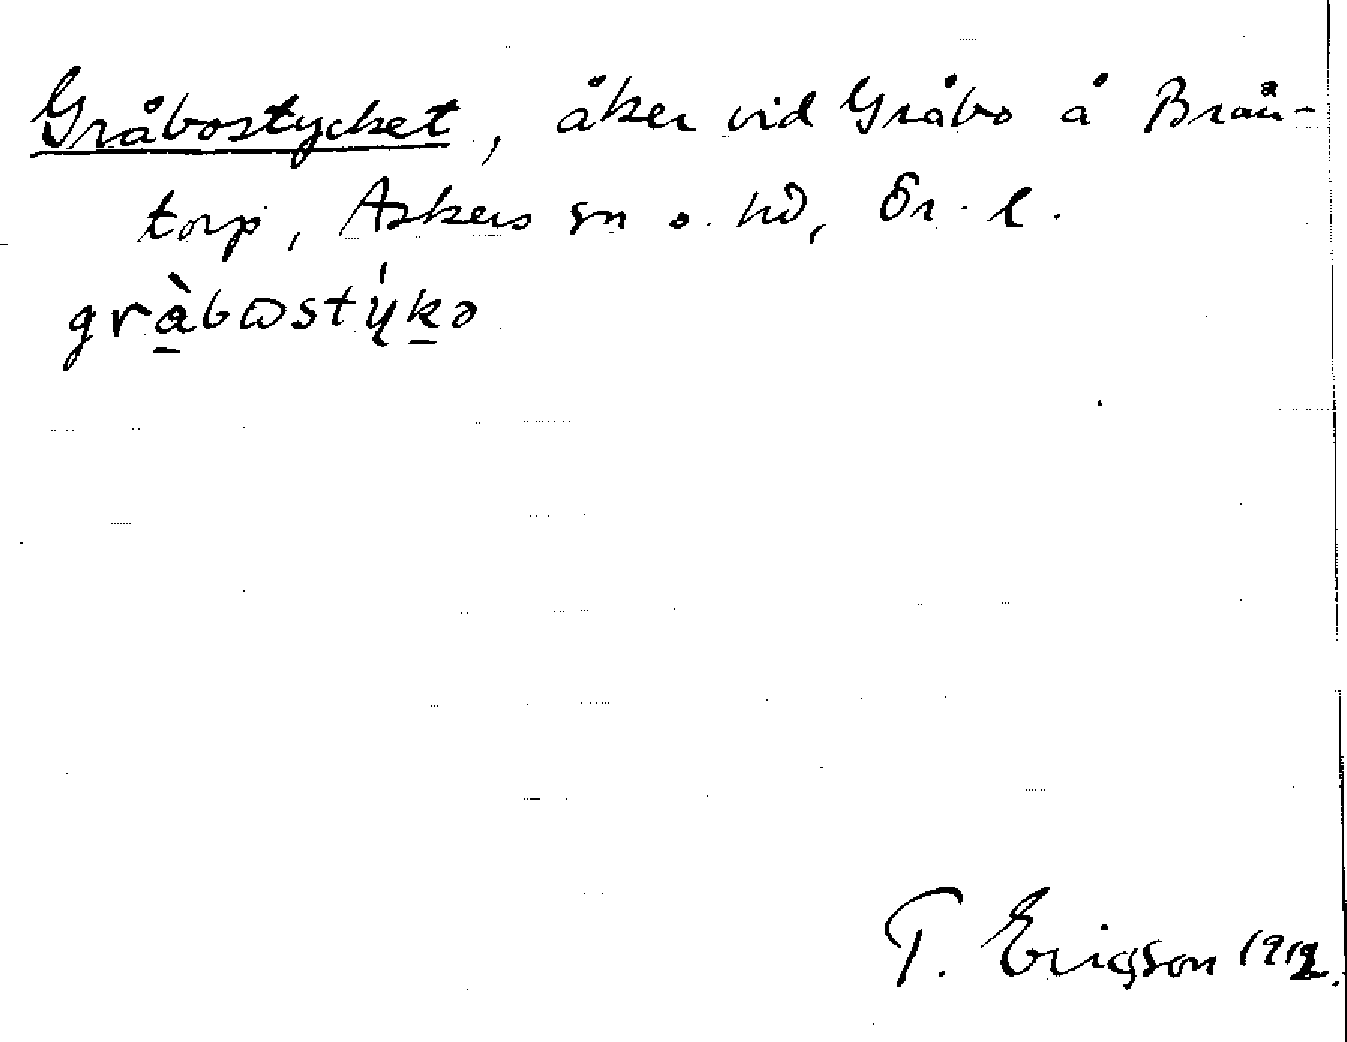 Gråbostycket, åker vid Gråbo å Brån-
torp, Askers sn o. hd, Ör. l.
gràbostýkə
T. Ericson 1912.